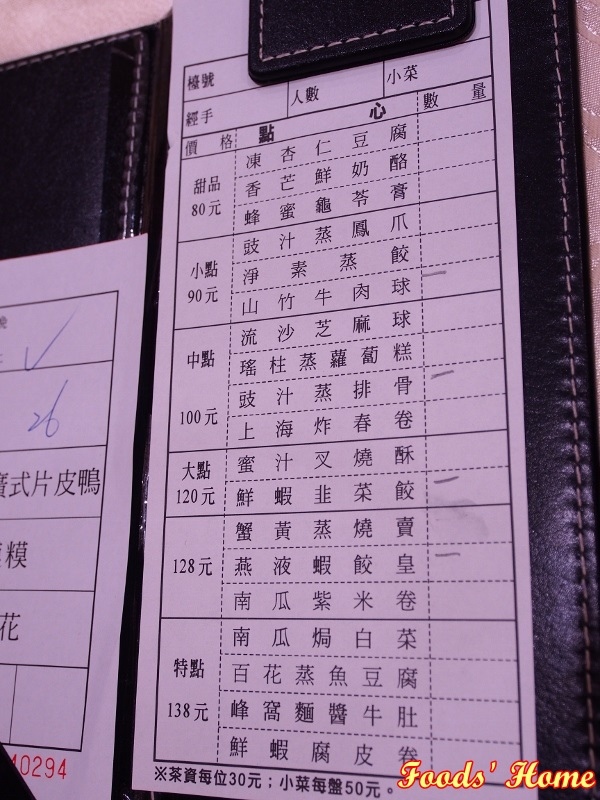 檯號
人數
小菜
經手
價格 點心 數量
甜品 80元
凍杏仁豆腐
香芒鮮奶酪
蜂蜜龜苓膏
小點 90元
豉汁蒸鳳爪
淨素蒸餃
山竹牛肉球
中點 100元
流沙芝麻球
瑤柱蒸蘿蔔糕
豉汁蒸排骨
上海炸春卷
大點 120元
蜜汁叉燒酥
鮮蝦韭菜餃
128元
蟹黃蒸燒賣
燕液蝦餃皇
南瓜紫米卷
特點 138元
南瓜焗白菜
百花蒸魚豆腐
蜂窩麵醬牛肚
鮮蝦腐皮卷
※茶資每位30元；小菜每盤50元。
26
廣式片皮鴨
糢
花
40294
Foods' Home